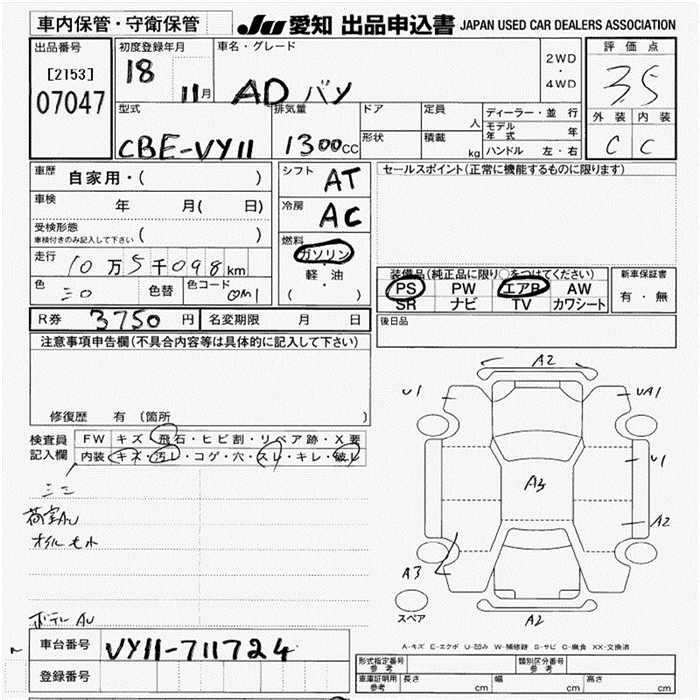 車内保管・守衛保管
JU 愛知 出品申込書 JAPAN USED CAR DEALERS ASSOCIATION
出品番号
[2153]
07047
初度登録年月
18
11月
車名・グレード
AD バン
2WD
・
4WD
評価点
3.5
外装 内装
C C
型式
CBE-VY11
排気量
1300CC
ドア
形状
定員
人
積載
kg
ディーラー・並行
モデル年式 年
ハンドル 左・右
車歴
自家用・( )
車検
年 月( 日)
受検形態
車検付きのみ記入して下さい ( )
走行
10万5千098km
色
色替
色コード
QM1
シフト
AT
冷房
AC
燃料
ガソリン
・
軽・油
( )
セールスポイント(正常に機能するものに限ります)
装備品(純正品に限り○をつけてください)
PS PW エアB AW
SR ナビ TV カワシート
新車保証書
有・無
後日品
R券 3750円
名変期限 月 日
注意事項申告欄(不具合内容等は具体的に記入して下さい)
修復歴 有(箇所 )
検査員
記入欄
FW キズ・飛石・ヒビ割・リペア跡・X要
内装 キズ・汚レ・コゲ・穴・スレ・キレ・破レ
荷室AU
オイルモレ
ボデーAU
A2
U1
UA1
U1
A3
A2
A3
スペア
A2
A-キズ E-エクボ U-凹み W-補修跡 S-サビ C-腐食 XX-交換済
車台番号
VY11-711724
登録番号
形式指定番号
参考
類別区分番号
参考
車庫証明用
参考
長さ cm 幅 cm 高さ cm